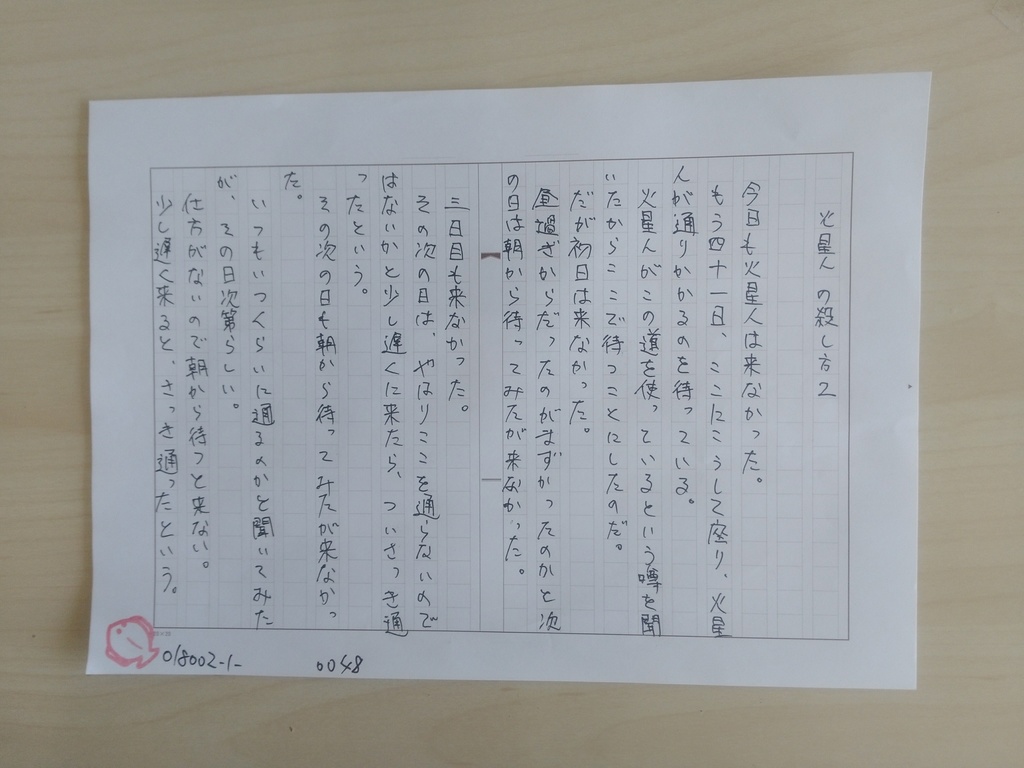 火星人の殺し方2
今日も火星人は来なかった。
もう四十一日、ここにこうして座り、火星
人が通りかかるのを待っている。
火星人がこの道を使っているという噂を聞
いたからここで待つことにしたのだ。
だが初日は来なかった。
昼過ぎからだったのがまずかったのかと次
の日は朝から待ってみたが来なかった。
三日目も来なかった。
その次の日は、やはりここを通らないので
はないかと少し遅くに来たら、ついさっき通
ったという。
その次の日も朝から待ってみたが来なかっ
た。
いつもいつくらいに通るのかと聞いてみた
が、その日次第らしい。
仕方がないので朝から待つと来ない。
少し遅く来ると、さっき通ったという。
018002-1-
0048